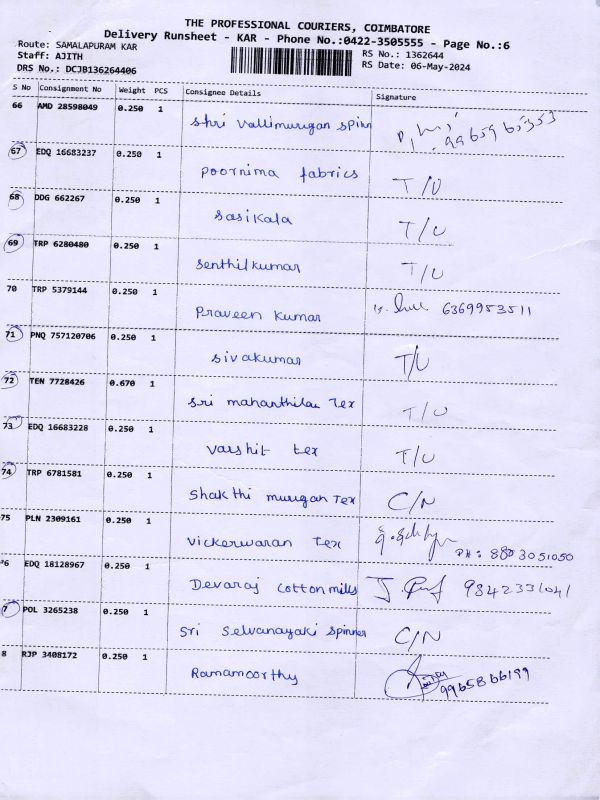 THE PROFESSIONAL COURIERS, COIMBATORE
Delivery Runsheet - KAR - Phone No.:0422-3505555 - Page No.:6
Route: SAMALAPURAM KAR
Staff: AJITH
DRS No.: DCJB136264406
RS No.: 1362644
RS Date: 06-May-2024
S No Consignment No Weight PCS Consignee Details Signature
66 AMD 28598049 0.250 1 Shri Vallimurugan Spinn
67 EDQ 16683237 0.250 1 Poornima fabrics T/U
68 DDG 662267 0.250 1 Sasikala T/U
69 TRP 6280480 0.250 1 Senthilkumar T/U
70 TRP 5379144 0.250 1 Praveen Kumar 6369953511
71 PNQ 757120706 0.250 1 Sivakumar T/U
72 TEN 7728426 0.670 1 Sri Tex T/U
73 EDQ 16683228 0.250 1 Varshit tex T/U
74 TRP 6781581 0.250 1 Shakthi murugan Tex C/N
75 PLN 2309161 0.250 1 Vickerwaran Tex PH: 8803051050
76 EDQ 18128967 0.250 1 Devaraj cotton mills 9842331041
7 POL 3265238 0.250 1 Sri Selvanayaki Spinner C/N
8 RJP 3408172 0.250 1 Ramamoorthy 9965866199